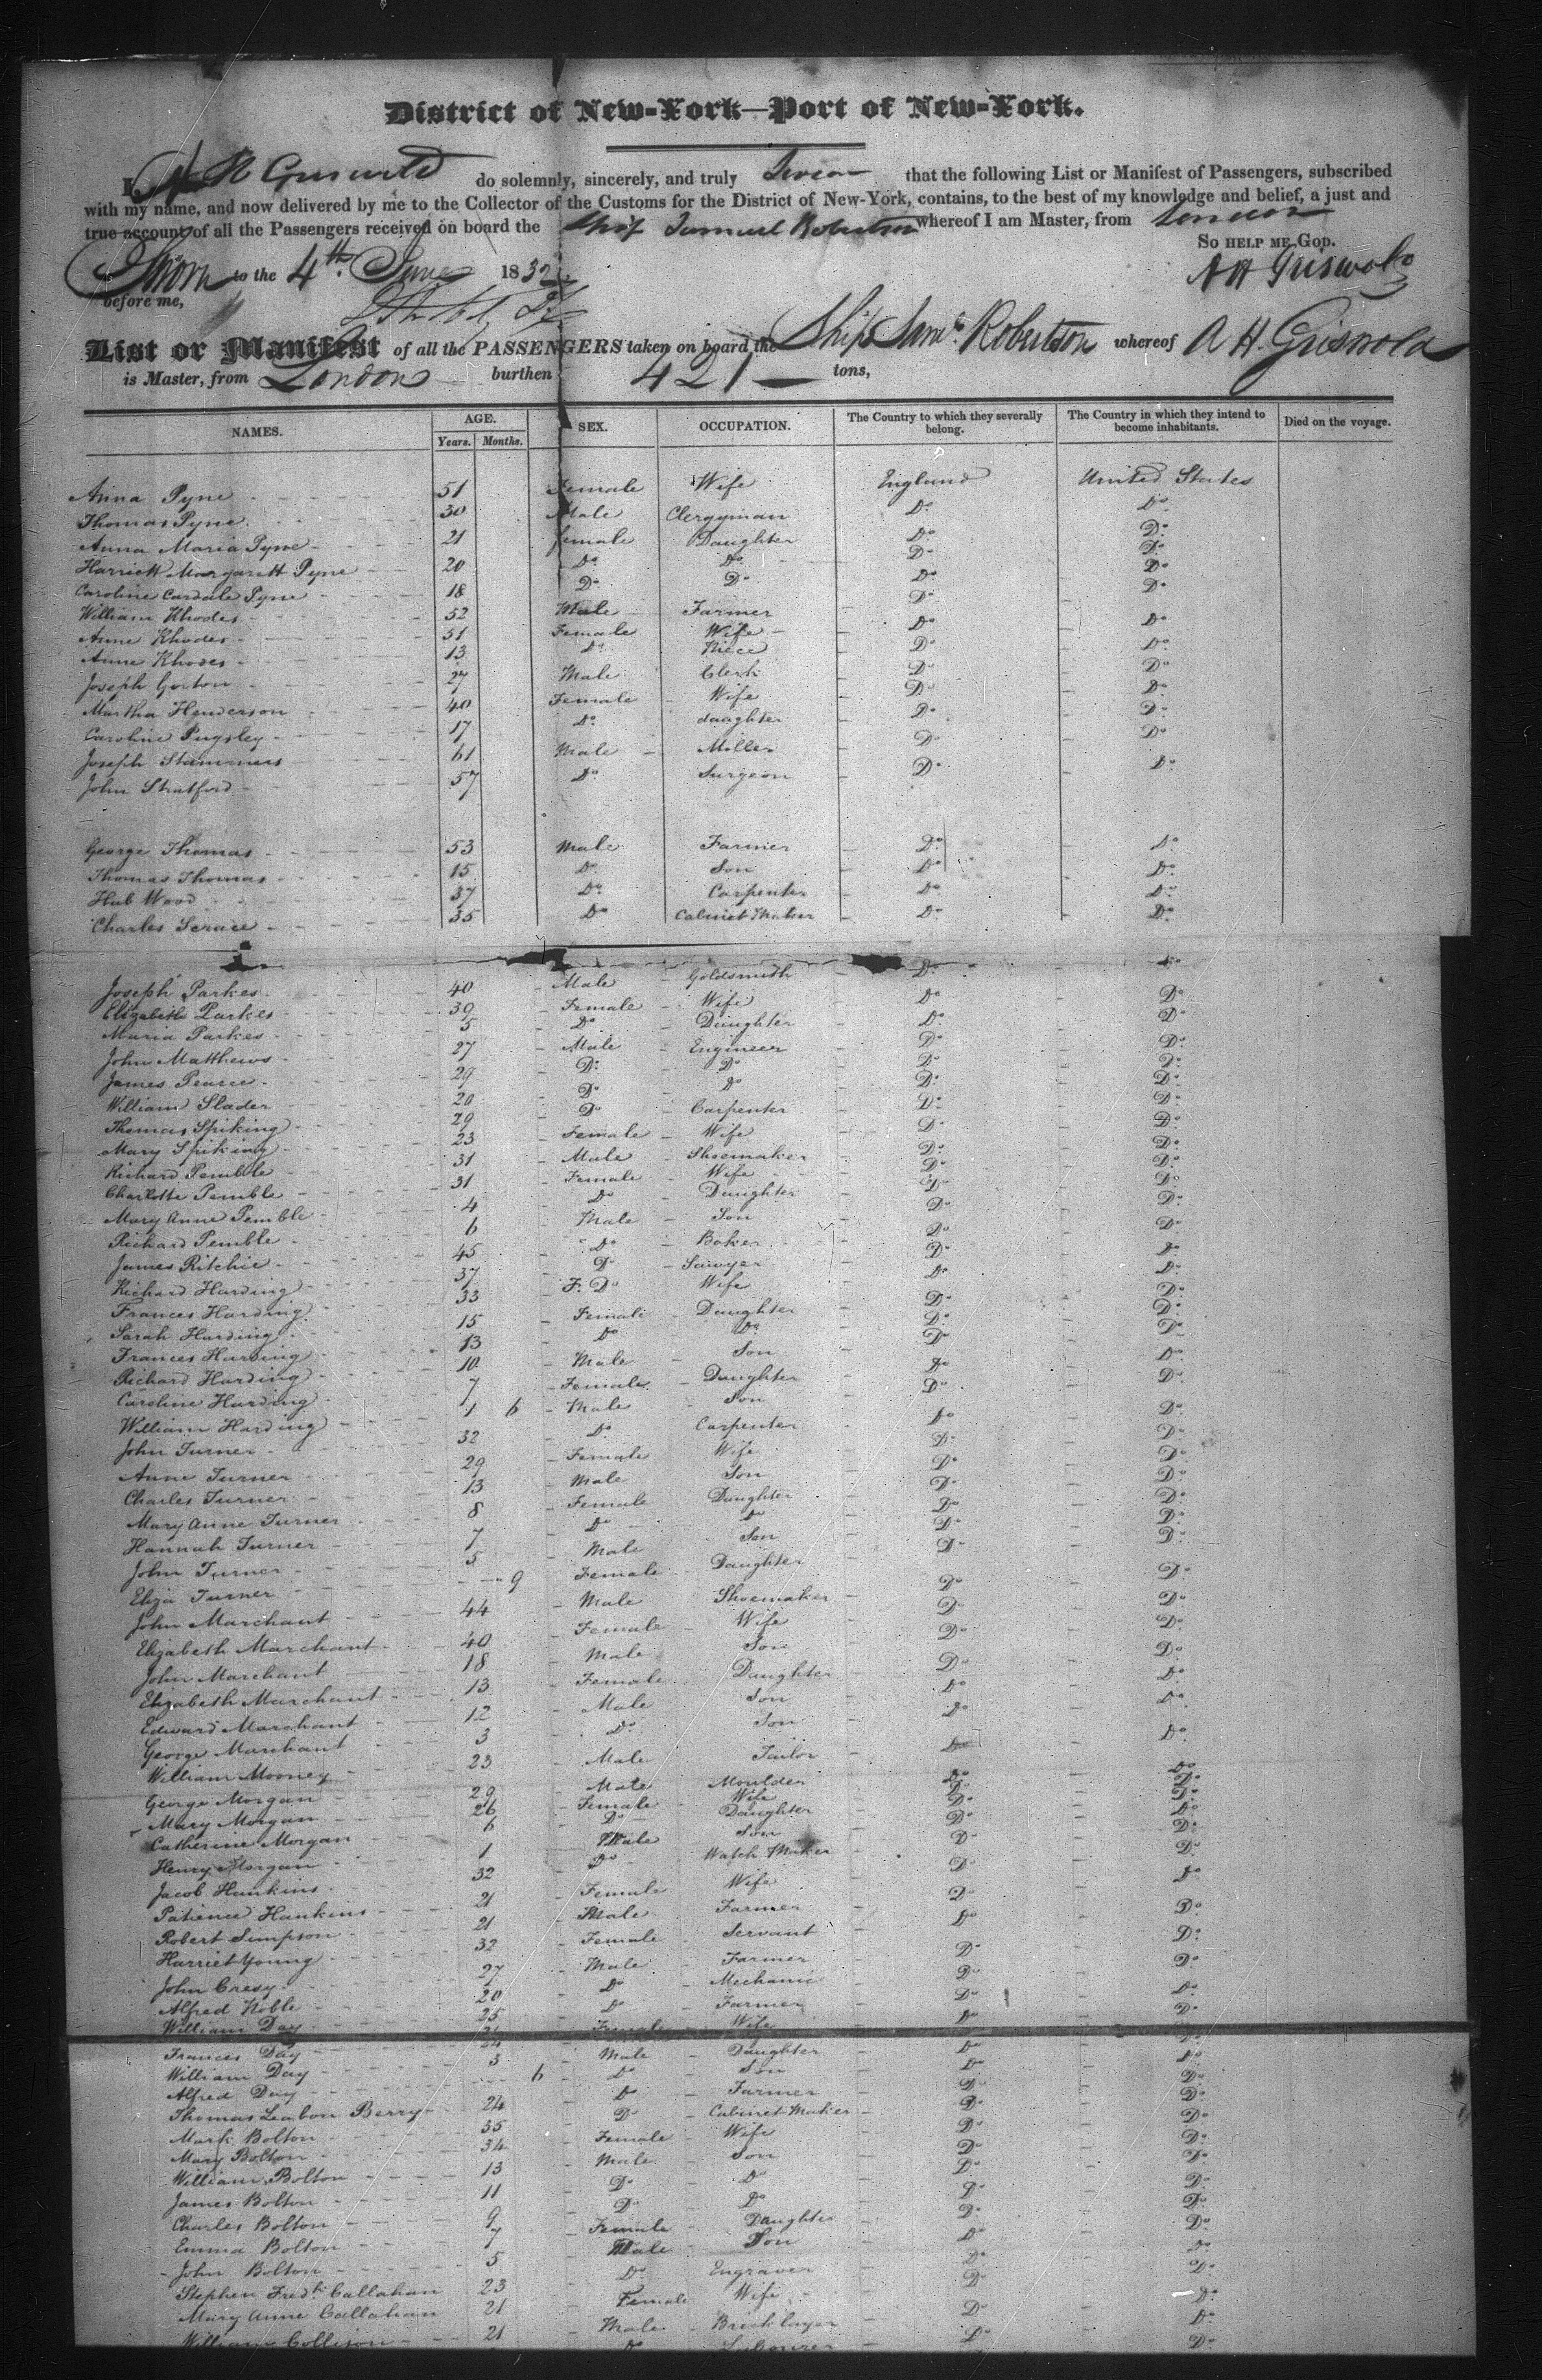 District of New-York—Port of New-York.
I, A H Griswold do solemnly, sincerely, and truly Swear that the following List or Manifest of Passengers, subscribed
with my name, and now delivered by me to the Collector of the Customs for the District of New-York, contains, to the best of my knowledge and belief, a just and
true account of all the Passengers received on board the Ship Samuel Robertson whereof I am Master, from London
So HELP ME GOD.
Sworn to the 4th June 1832
before me,
A H Griswold
List or Manifest of all the PASSENGERS taken on board the Ship Saml. Robertson whereof A H. Griswold
is Master, from London burthen 421 tons,
NAMES. AGE. Years. Months. SEX. OCCUPATION. The Country to which they severally belong. The Country in which they intend to become inhabitants. Died on the voyage.
Anna Pyne 51 Female Wife England United States
Thomas Pyne 30 Male Clergyman Do. Do.
Anna Maria Pyne 21 female Daughter Do. Do.
Harriett Margarett Pyne 20 Do. Do. Do. Do.
Caroline Cardale Pyne 18 Do. Do. Do. Do.
William Rhodes 52 Male Farmer Do. Do.
Anne Rhodes 51 Female Wife Do. Do.
Anne Rhodes 13 Do. Niece Do. Do.
Joseph Gorton 27 Male Clerk Do. Do.
Martha Henderson 40 Female Wife Do. Do.
Caroline Pugsley 17 Do. daughter Do. Do.
Joseph Stammers 61 Male Miller Do. Do.
John Stratford 57 Do. Surgeon Do. Do.
George Thomas 53 Male Farmer Do. Do.
Thomas Thomas 15 Do. Son Do. Do.
Hab Wood 37 Do. Carpenter Do. Do.
Charles Scrace 35 Do Cabinet Maker Do. Do.
Joseph Parkes 40 Male Goldsmith Do. Do.
Elizabeth Parkes 39 Female Wife Do. Do.
Maria Parkes 5 Do. Daughter Do. Do.
John Matthews 27 Male Engineer Do. Do.
James Pearce 29 Do. Do. Do. Do.
William Slader 20 Do. Do. Do. Do.
Thomas Spiking 29 Do. Carpenter Do. Do.
Mary Spiking 23 Female Wife Do. Do.
Richard Pemble 31 Male Shoemaker Do. Do.
Charlotte Pemble 31 Female Wife Do. Do.
Mary Anne Pemble 4 Do. Daughter Do. Do.
Richard Pemble 6 Male Son Do. Do.
James Ritchie 45 Do. Baker Do. Do.
Richard Harding 37 Do. Sawyer Do. Do.
Frances Harding 33 F. Do Wife Do. Do.
Sarah Harding 15 Female Daughter Do. Do.
Frances Harding 13 Do. Do. Do. Do.
Richard Harding 10 Male Son Do. Do.
Caroline Harding 7 Female Daughter Do. Do.
William Harding 1 6 Male Son Do. Do.
John Turner 32 Do. Carpenter Do. Do.
Anne Turner 29 Female Wife Do. Do.
Charles Turner 13 Male Son Do. Do.
Mary Anne Turner 8 Female Daughter Do. Do.
Hannah Turner 7 Do. Do. Do. Do.
John Turner 5 Male Son Do. Do.
Eliza Turner 9 Female Daughter Do. Do.
John Marchant 44 Male Shoemaker Do. Do.
Elizabeth Marchant 40 Female Wife Do. Do.
John Marchant 18 Male Son Do. Do.
Elizabeth Marchant 13 Female Daughter Do. Do.
Edward Marchant 12 Male Son Do. Do.
George Marchant 3 Do. Son Do. Do.
William Mooney 23 Male Tailor Do. Do.
George Morgan 29 Male Moulder Do. Do.
Mary Morgan 26 Female Wife Do. Do.
Catherine Morgan 6 Do. Daughter Do. Do.
Henry Morgan 1 Male Son Do. Do.
Jacob Hankins 32 Do. Watch Maker Do. Do.
Patience Hankins 21 Female Wife Do. Do.
Robert Simpson 21 Male Farmer Do. Do.
Harriet Young 32 Female Servant Do. Do.
John Cresy 27 Male Farmer Do. Do.
Alfred Noble 20 Do. Mechanic Do. Do.
William Day 25 Do. Farmer Do. Do.
Frances Day 24 Female Wife Do. Do.
William Day 3 Male Daughter Do. Do.
Alfred Day 6 Do. Son Do. Do.
Thomas Leabon Berry 24 Do. Farmer Do. Do.
Mark Bolton 35 Do. Cabinet Maker Do. Do.
Mary Bolton 34 Female Wife Do. Do.
William Bolton 13 Male Son Do. Do.
James Bolton 11 Do. Do. Do. Do.
Charles Bolton 9 Do. Do. Do. Do.
Emma Bolton 7 Female Daughter Do. Do.
John Bolton 5 Male Son Do. Do.
Stephen Fredk. Callahan 23 Do. Engraver Do. Do.
Mary Anne Callahan 21 Female Wife Do. Do.
William Collison 21 Male Bricklayer Do. Do.
Do. Labourer Do. Do.